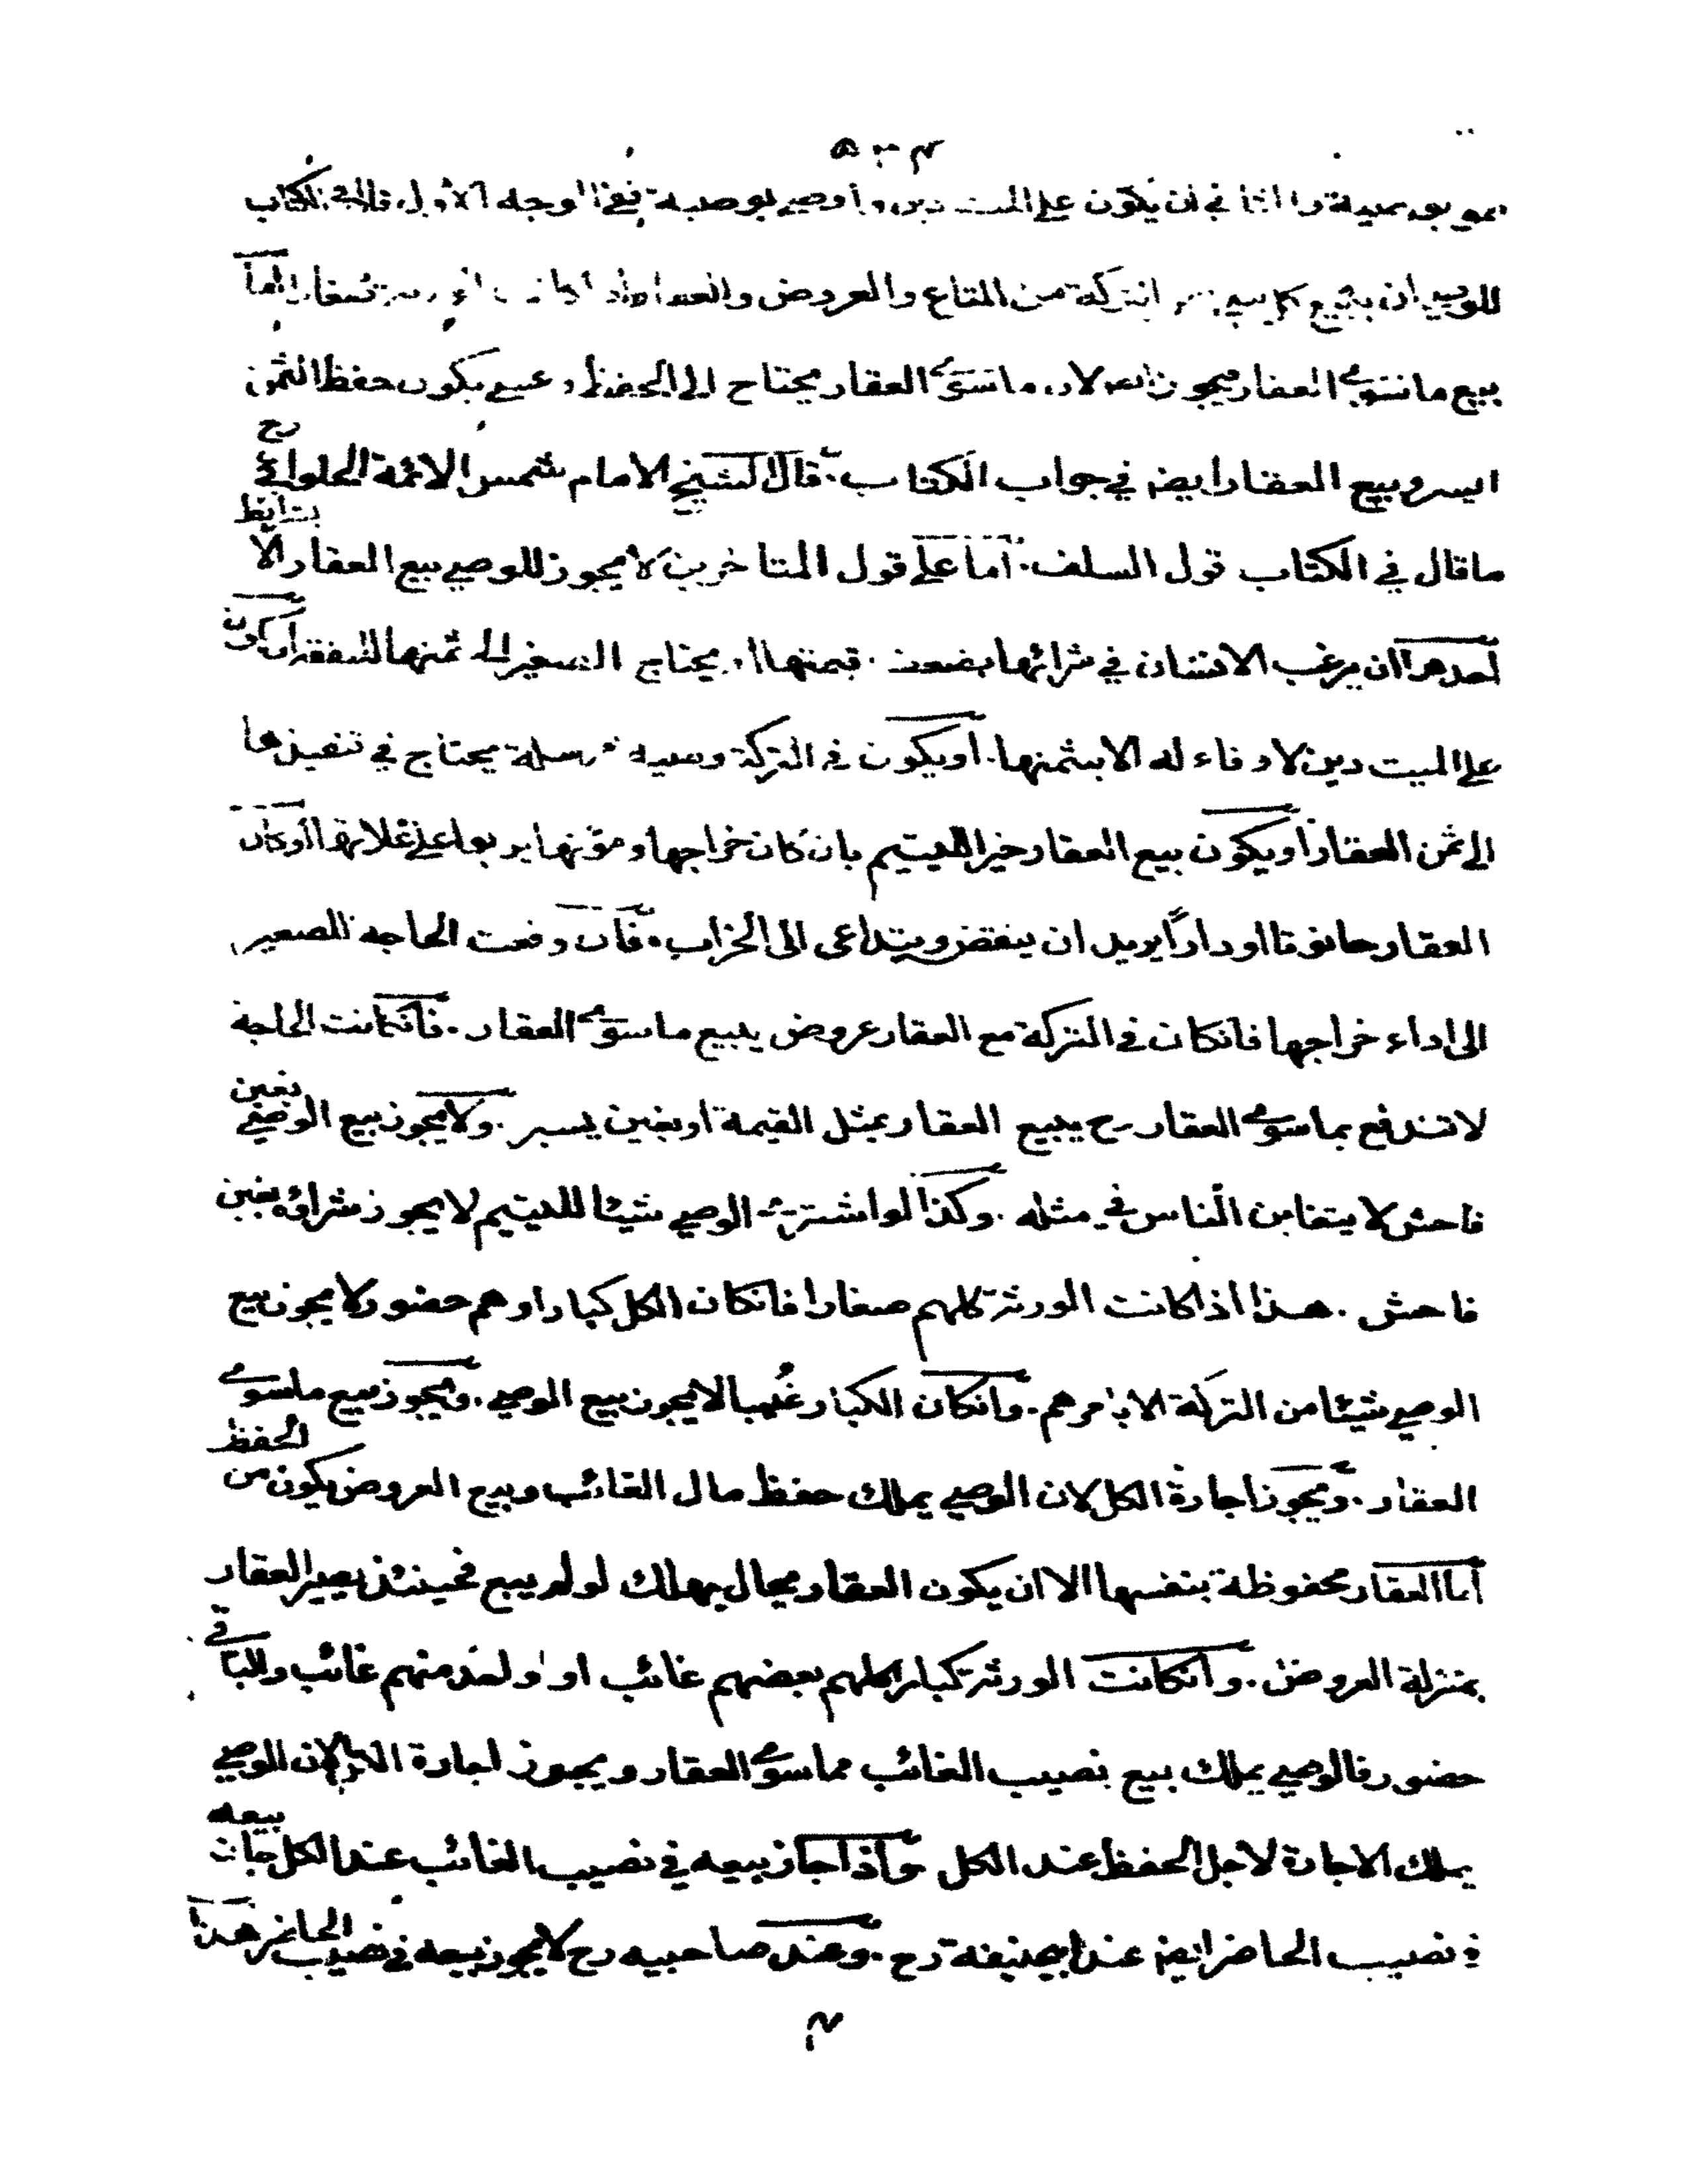 والثاني ان يكون على الميت دين او اوصى بوصية ففي الوجه الاول قال في الكتاب
للوصي ان يبيع كل شيء التركة من المتاع والعروض والعقار اما
بيع ما سوى العقار فيجوز لان ما سوى العقار يحتاج الى الحفظ و يكون حفظ الثمن
ايسر وبيع العقار ايضا في جواب الكتاب. قال الشيخ الامام شمس الائمة الحلوائي رح
ما قال في الكتاب قول السلف. اما على قول المتاخرين لا يجوز للوصي بيع العقار الا بشرائط
احدها ان يرغب الانسان في شرائها بضعف قيمتها او يحتاج الصغير الى ثمنها للنفقة او يكون
على الميت دين لا وفاء له الا بثمنها. او يكون في التركة وصية مرسلة يحتاج في تنفيذها
الى ثمن العقار او يكون بيع العقار خيرا لليتيم بان كان خراجها ومؤنها يربوا على غلاتها او كان
العقار حانوتا او دارا يريد ان ينقض ويتداعى الى الخراب. فان وقعت الحاجة للصغير
الى اداء خراجها فانكان في التركة مع العقار عروض يبيع ما سوى العقار. فانكانت الحاجة
لا تندفع بما سوى العقار رح يبيع العقار بمثل القيمة او بغبن يسير. ولا يجوز بيع الوصي بغبن
فاحش لا يتغابن الناس في مثله. وكذا لو اشترى الوصي شيئا لليتيم لا يجوز شراؤه بغبن
فاحش. هذا اذا كانت الورثة كلهم صغارا فانكان الكل كبارا وهم حضور لا يجوز بيع
الوصي شيئا من التركة الا بامرهم. وانكان الكبار غيبا لا يجوز بيع الوصي. ويجوز بيع ما سوى
العقار. ويجوز اجارة الكل لان الوصي يملك حفظ مال الغائب وبيع العروض يكون من الحفظ
اما العقار محفوظة بنفسها الا ان يكون العقار بحال يهلك لو لم يبع فحينئذ يصير العقار
بمنزلة العروض. وانكانت الورثة كبارا كلهم بعضهم غائب او واحد منهم غائب والباقي
حضور فالوصي يملك بيع نصيب الغائب مما سوى العقار ويجوز اجارة الكل لان الوصي
يملك الاجارة لاجل الحفظ عند الكل واذا جاز بيعه في نصيب الغائب عند الكل جاز بيعه
في نصيب الحاضر ايضا عند ابيحنيفة رح. وعند صاحبيه رح لا يجوز بيعه في نصيب الحاضر هذا